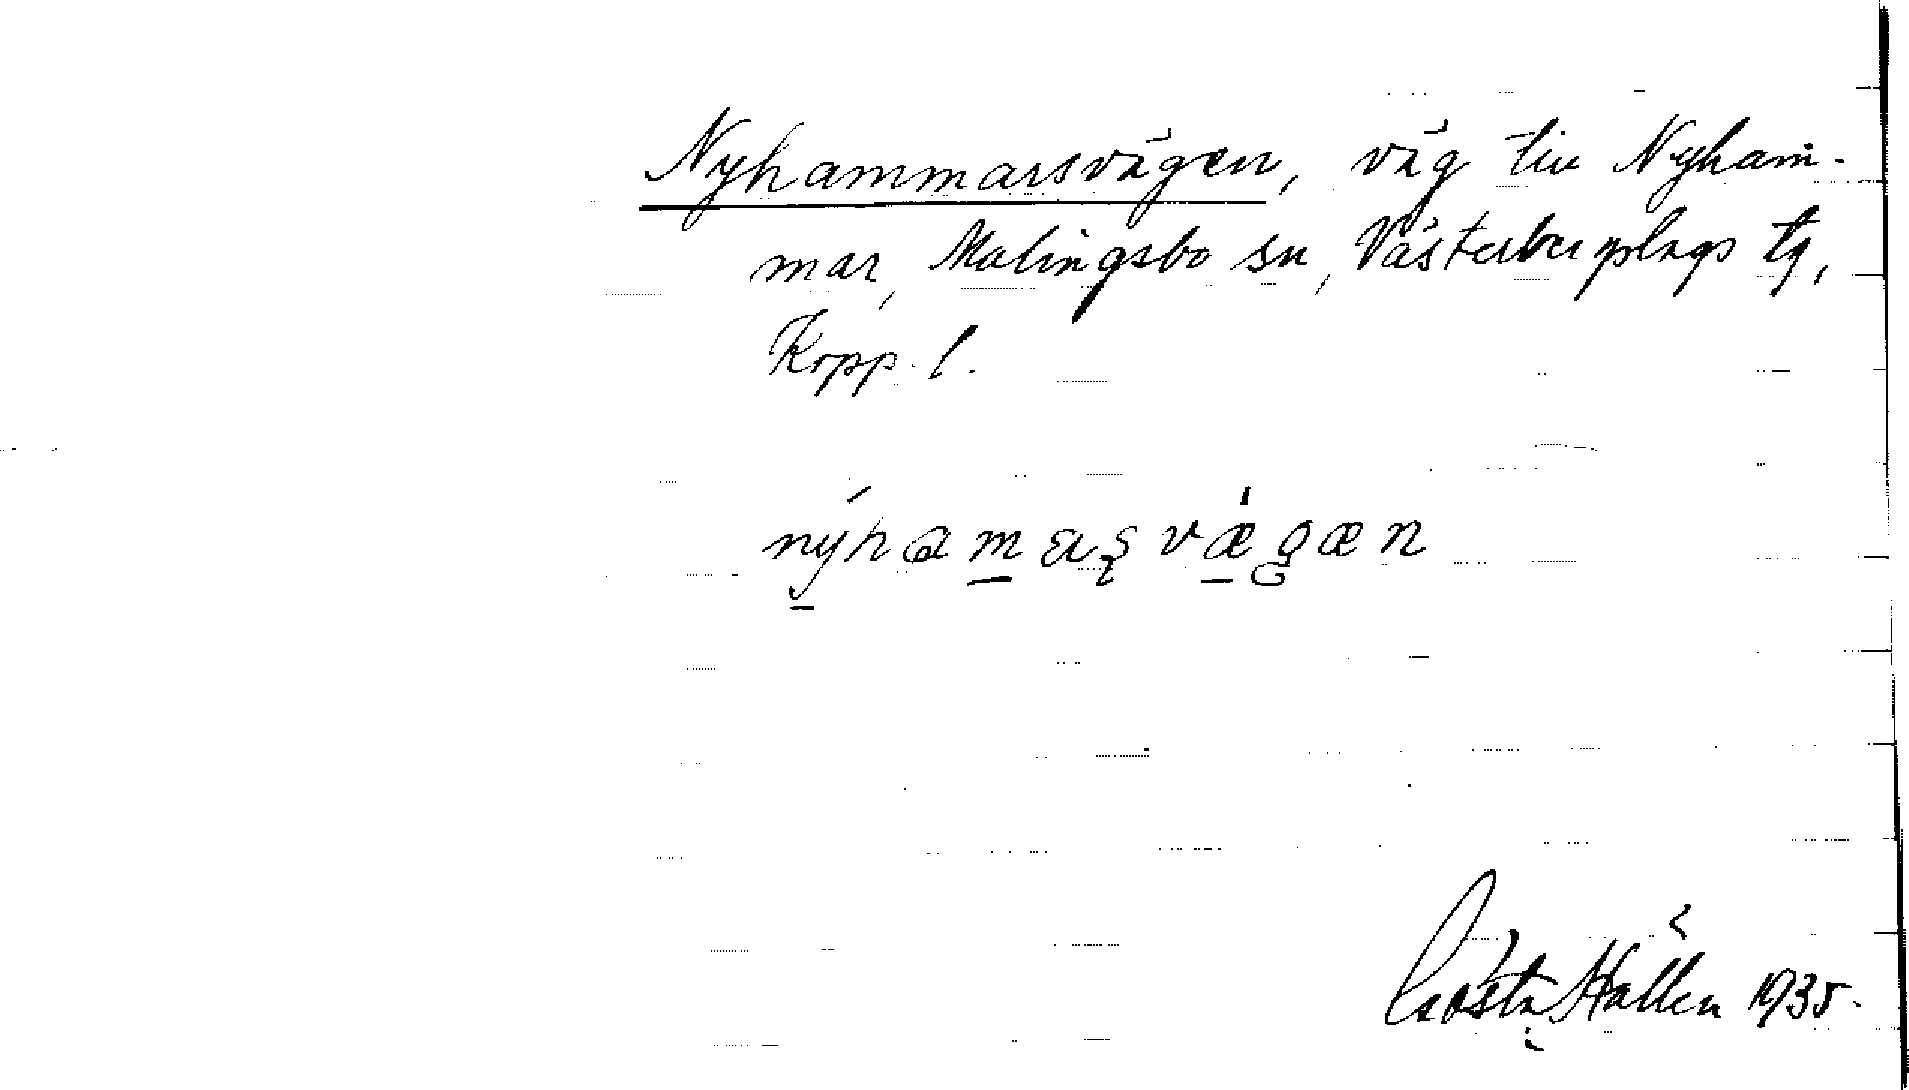 Nyhammarsvägen, väg till Nyham-
mar, Malingsbo sn, Västerbergslags tg,
Kopp. l.
nýhamaʂvǽgæn
Gösta Hallén 1935.